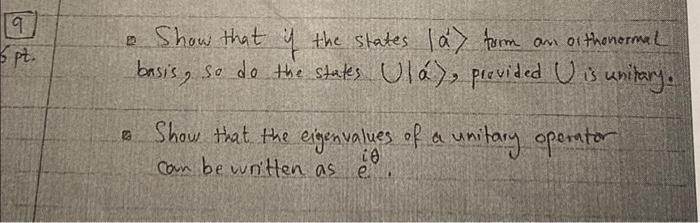 9
5 pt.
▫ Show that if the states |a'> form an orthonormal
basis, so do the states U|a'>, provided U is unitary.
▫ Show that the eigenvalues of a unitary operator
can be written as e^{iθ}.